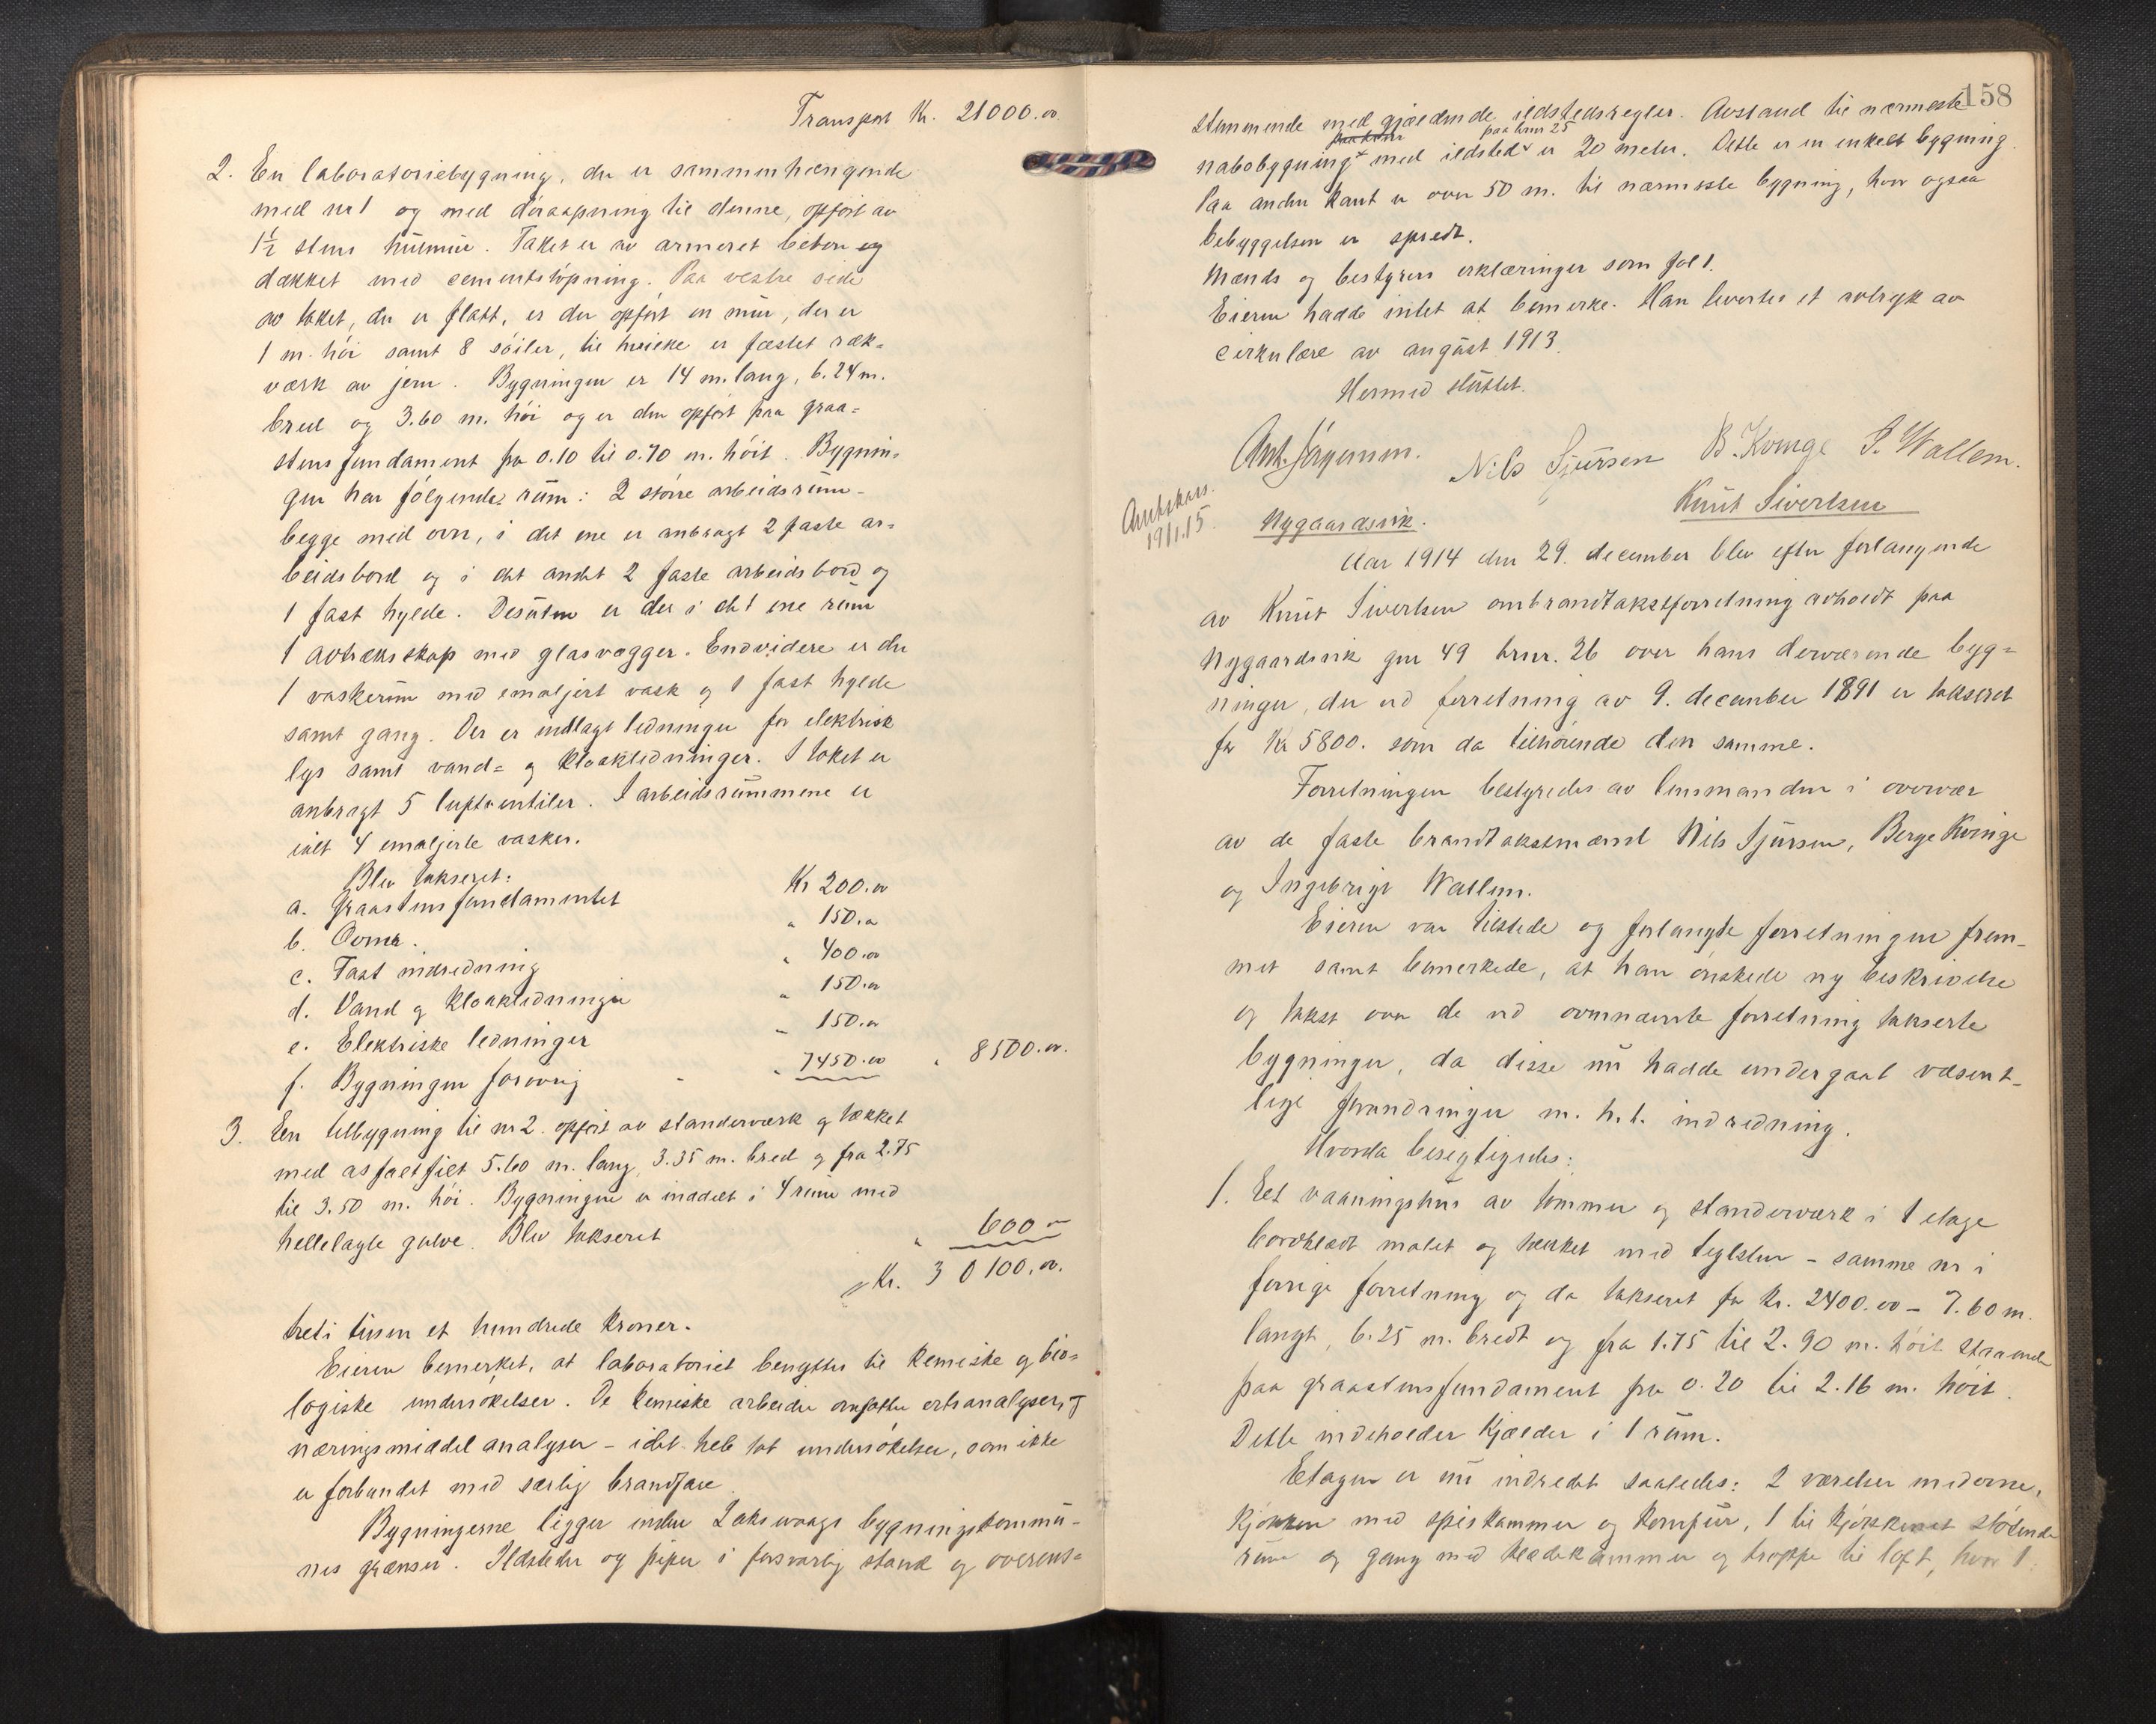 Transport Kr. 21000.00
2. En laboratoriebygning, der er sammenhængende
med nr 1 og med döraapning til denne, opfört av
1½ stens murmur. Taket er av armeret beton og
dækket med cementstöpning. Paa vestre side
av taket, der er flatt, er der opfört en mur, der er
1 m. höi samt 8 söiler, til hvilke er fæstet ræk=
værk av jern. Bygningen er 14 m. lang, 6.24 m.
bred og 3.60 m. höi og er den opfört paa graa=
stens fundament fra 0.10 til 0.70 m. höit. Bygnin=
gen har fölgende rum: 2 större arbeidsrum -
begge med ovn, i det ene er anbragt 2 faste ar=
beidsbord og i det andet 2 faste arbeidsbord og
1 fast hylde. Desuten er der i det ene rum
1 avtræksskap med glasvægger. Endvidere er der
1 vaskerum med emaljert vask og 1 fast hylde
samt gang. Der er indlagt ledninger for elektrisk
lys samt vand= og kloakledninger. I taket er
anbragt 5 luftventiler. I arbeidsrummene er
ialt 4 emaljerte vasker.
Blev takseret:
a. Graastensfundamentet Kr 200.00
b. Ovner. " 150.00
c. Fast indredning " 400.00
d. Vand og kloakledninger " 150.00
e. Elektriske ledninger " 150.00
f. Bygningen forövrig " 7450.00 " 8500.00.
3. Een tilbygning til nr 2 opfört av standerværk og tækket
med asfaltfilt 5.60 m. lang, 3.35 m. bred og fra 2.75
til 3.50 m. höi. Bygningen er inddelt i 4 rum med
hellelagte gulve. Blev takseret " 600 -
Kr. 30100.00.
treti tusen et hundrede kroner.
Eieren bemerket, at laboratoriet benyttes til kemiske og bio=
logiske undersökelser. De kemiske arbeider omfatter ertsanalyser, og
næringsmiddel analyser - idet hele tat undersökelser, som ikke
er forbundet med særlig brandfare.
Bygningerne ligger inden Laksevaags bygningskommu=
nes grænser. Ildsteder og piper i forsvarlig stand og overens=
158
stemmende med gjældende ildstedsregler. Avstand til nærmeste
paa bnr 25
nabobygning med ildsted er 20 meter. Dette er en enkelt bygning.
Paa anden kant er over 50 m. til nærmeste bygning, hvor ogsaa
bebyggelsen er spredt.
Mænds og bestyrers erklæringer som fol 1.
Eieren hadde intet at bemerke. Han levertes et avtryk av
cirkulære av august 1913.
Hermed sluttet.
Ant. Jörgensen. Nils Sjursen B. Kvinge I. Wallem.
Knut Sivertsen
Amtskars.
19/1.15.
Nygaardsvik.
Aar 1914 den 29. december blev efter forlangende
av Knut Sivertsen ombrandtakstforretning avholdt paa
Nygaardsvik gnr 49 brnr. 26 over hans derværende byg=
ninger, der ved forretning av 9. december 1891 er takseret
for Kr 5800. som da tilhörende den samme.
Forretningen bestyredes av lensmanden i overvær
av de faste brandtakstmænd Nils Sjursen, Berge Kvinge
og Ingebrigt Wallem.
Eieren var tilstede og forlangte forretningen frem-
met samt bemerkede, at han önskede ny beskrivelse
og takst over de ved ovennævnte forretning takserte
bygninger, da disse nu hadde undergaat væsent-
lige forandringer m. h. t. indredning.
Hvorda besigtigedes:
1. Eet vaaningshus av tömmer og standerværk i 1 etage
bordklædt malet og tækket med teglsten - samme nr i
forrige forretning og da takseret for kr. 2400.00 - 7.60 m.
langt, 6.25 m. bredt og fra 1.75 til 2.90 m. höit staaende
paa graastensfundament fra 0.20 til 2.16 m. höit.
Dette indeholder kjælder i 1 rum.
Etagen er nu indredet saaledes: 2 værelser med ovne,
kjökken med spiskammer og komfur, 1 til kjökkenet stötende
rum og gang med klædekammer og trappe til loft, hvor 1